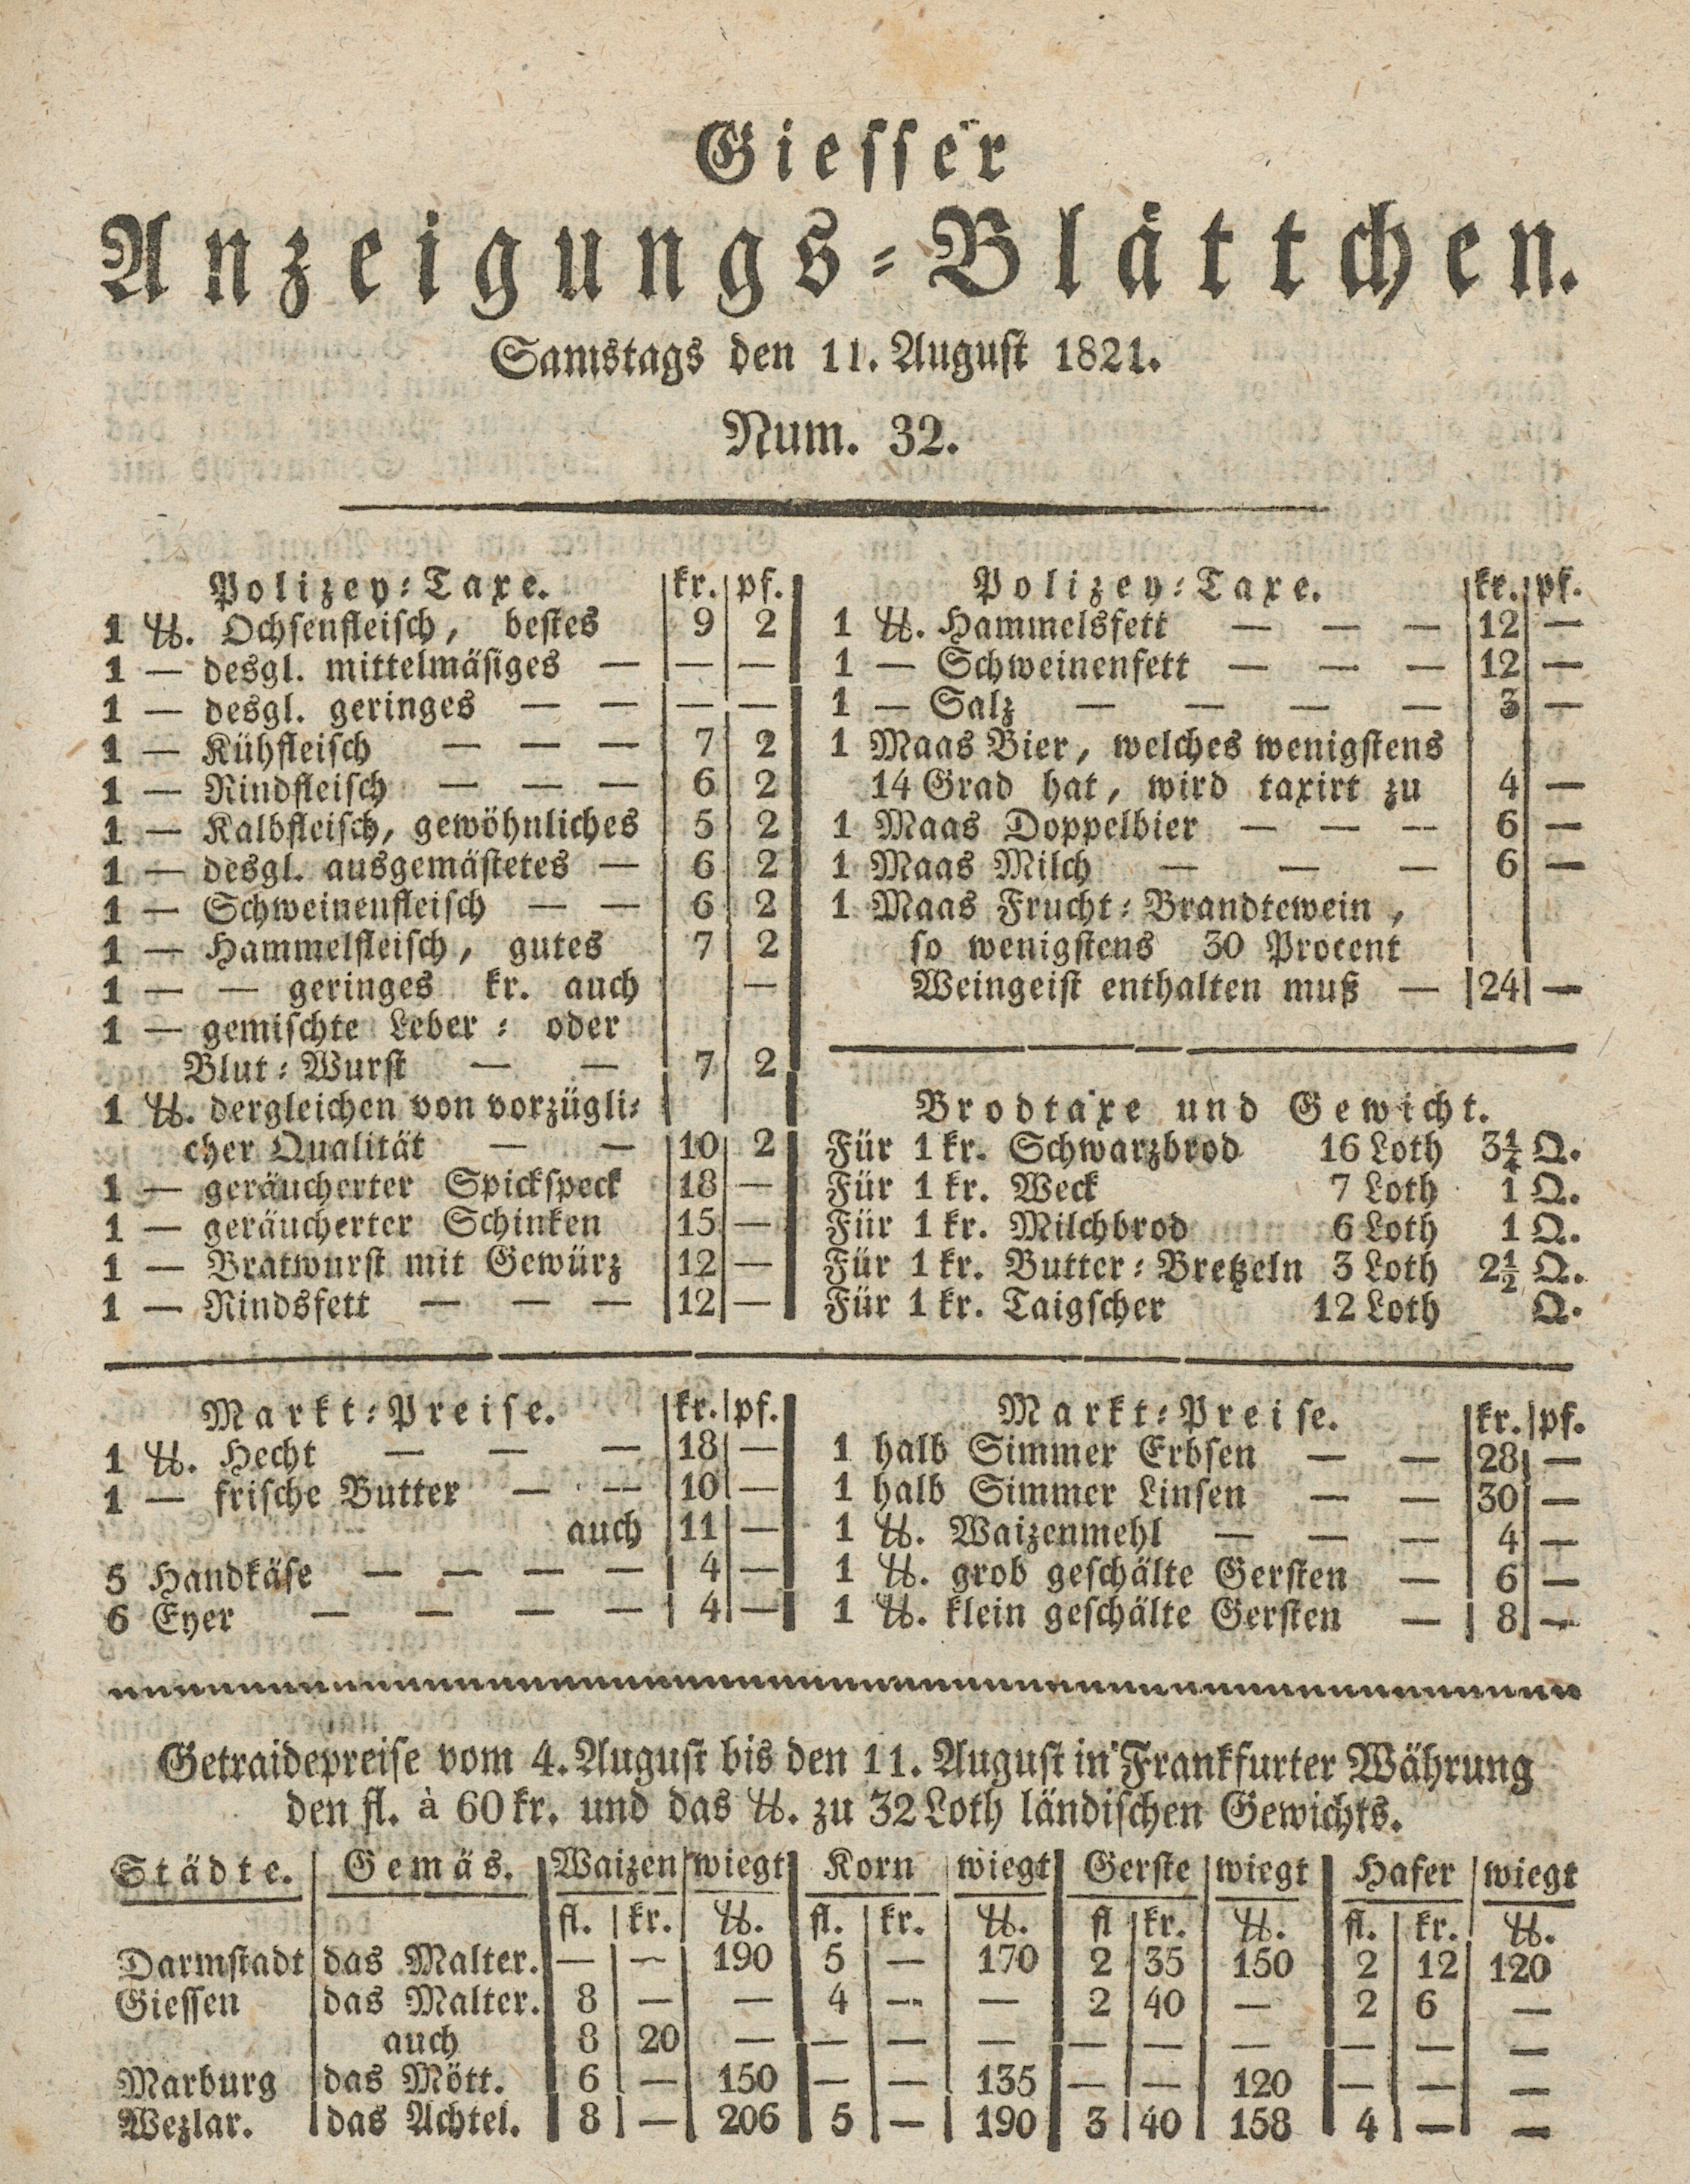 Giesser
Anzeigungs-Blättchen.
Samstags den 11. August 1821.
Num. 32.
Polizey-Taxe. kr. pf.
1 ℔. Ochsenfleisch, bestes 9 2
1 — desgl. mittelmäsiges — — —
1 — desgl. geringes — — — —
1 — Kühfleisch — — — 7 2
1 — Rindfleisch — — — 6 2
1 — Kalbfleisch, gewöhnliches 5 2
1 — desgl. ausgemästetes — 6 2
1 — Schweinenfleisch — — 6 2
1 — Hammelfleisch, gutes 7 2
1 — — geringes kr. auch —
1 — gemischte Leber- oder
Blut-Wurst — — 7 2
1 ℔. dergleichen von vorzügli-
cher Qualität — — 10 2
1 — geräucherter Spickspeck 18 —
1 — geräucherter Schinken 15 —
1 — Bratwurst mit Gewürz 12 —
1 — Rindsfett — — — 12 —
Polizey-Taxe. kr. pf.
1 ℔. Hammelsfett — — — 12 —
1 — Schweinenfett — — — 12 —
1 — Salz — — — — 3 —
1 Maas Bier, welches wenigstens
14 Grad hat, wird taxirt zu 4 —
1 Maas Doppelbier — — — 6 —
1 Maas Milch — — — 6 —
1 Maas Frucht-Brandtewein,
so wenigstens 30 Procent
Weingeist enthalten muß — 24 —
Brodtaxe und Gewicht.
Für 1 kr. Schwarzbrod 16 Loth 3¼ Q.
Für 1 kr. Weck 7 Loth 1 Q.
Für 1 kr. Milchbrod 6 Loth 1 Q.
Für 1 kr. Butter-Bretzeln 3 Loth 2½ Q.
Für 1 kr. Taigscher 12 Loth Q.
Markt-Preise. kr. pf.
1 ℔. Hecht — — — 18 —
1 — frische Butter — — 10 —
auch 11 —
5 Handkäse — — — — 4 —
6 Eyer — — — — 4 —
Markt-Preise. kr. pf.
1 halb Simmer Erbsen — — 28 —
1 halb Simmer Linsen — — 30 —
1 ℔. Waizenmehl — — — 4 —
1 ℔. grob geschälte Gersten — 6 —
1 ℔. klein geschälte Gersten — 8 —
Getraidepreise vom 4. August bis den 11. August in Frankfurter Währung
den fl. à 60 kr. und das ℔. zu 32 Loth ländischen Gewichts.
Städte. Gemäs. Waizen wiegt Korn wiegt Gerste wiegt Hafer wiegt
fl. kr. ℔. fl. kr. ℔. fl kr. ℔. fl. kr. ℔.
Darmstadt das Malter. — — 190 5 — 170 2 35 150 2 12 120
Giessen das Malter. 8 — — 4 — — 2 40 — 2 6 —
auch 8 20 — — — — — — — — — —
Marburg das Mött. 6 — 150 — — 135 — — 120 — — —
Wezlar. das Achtel. 8 — 206 5 — 190 3 40 158 4 — —